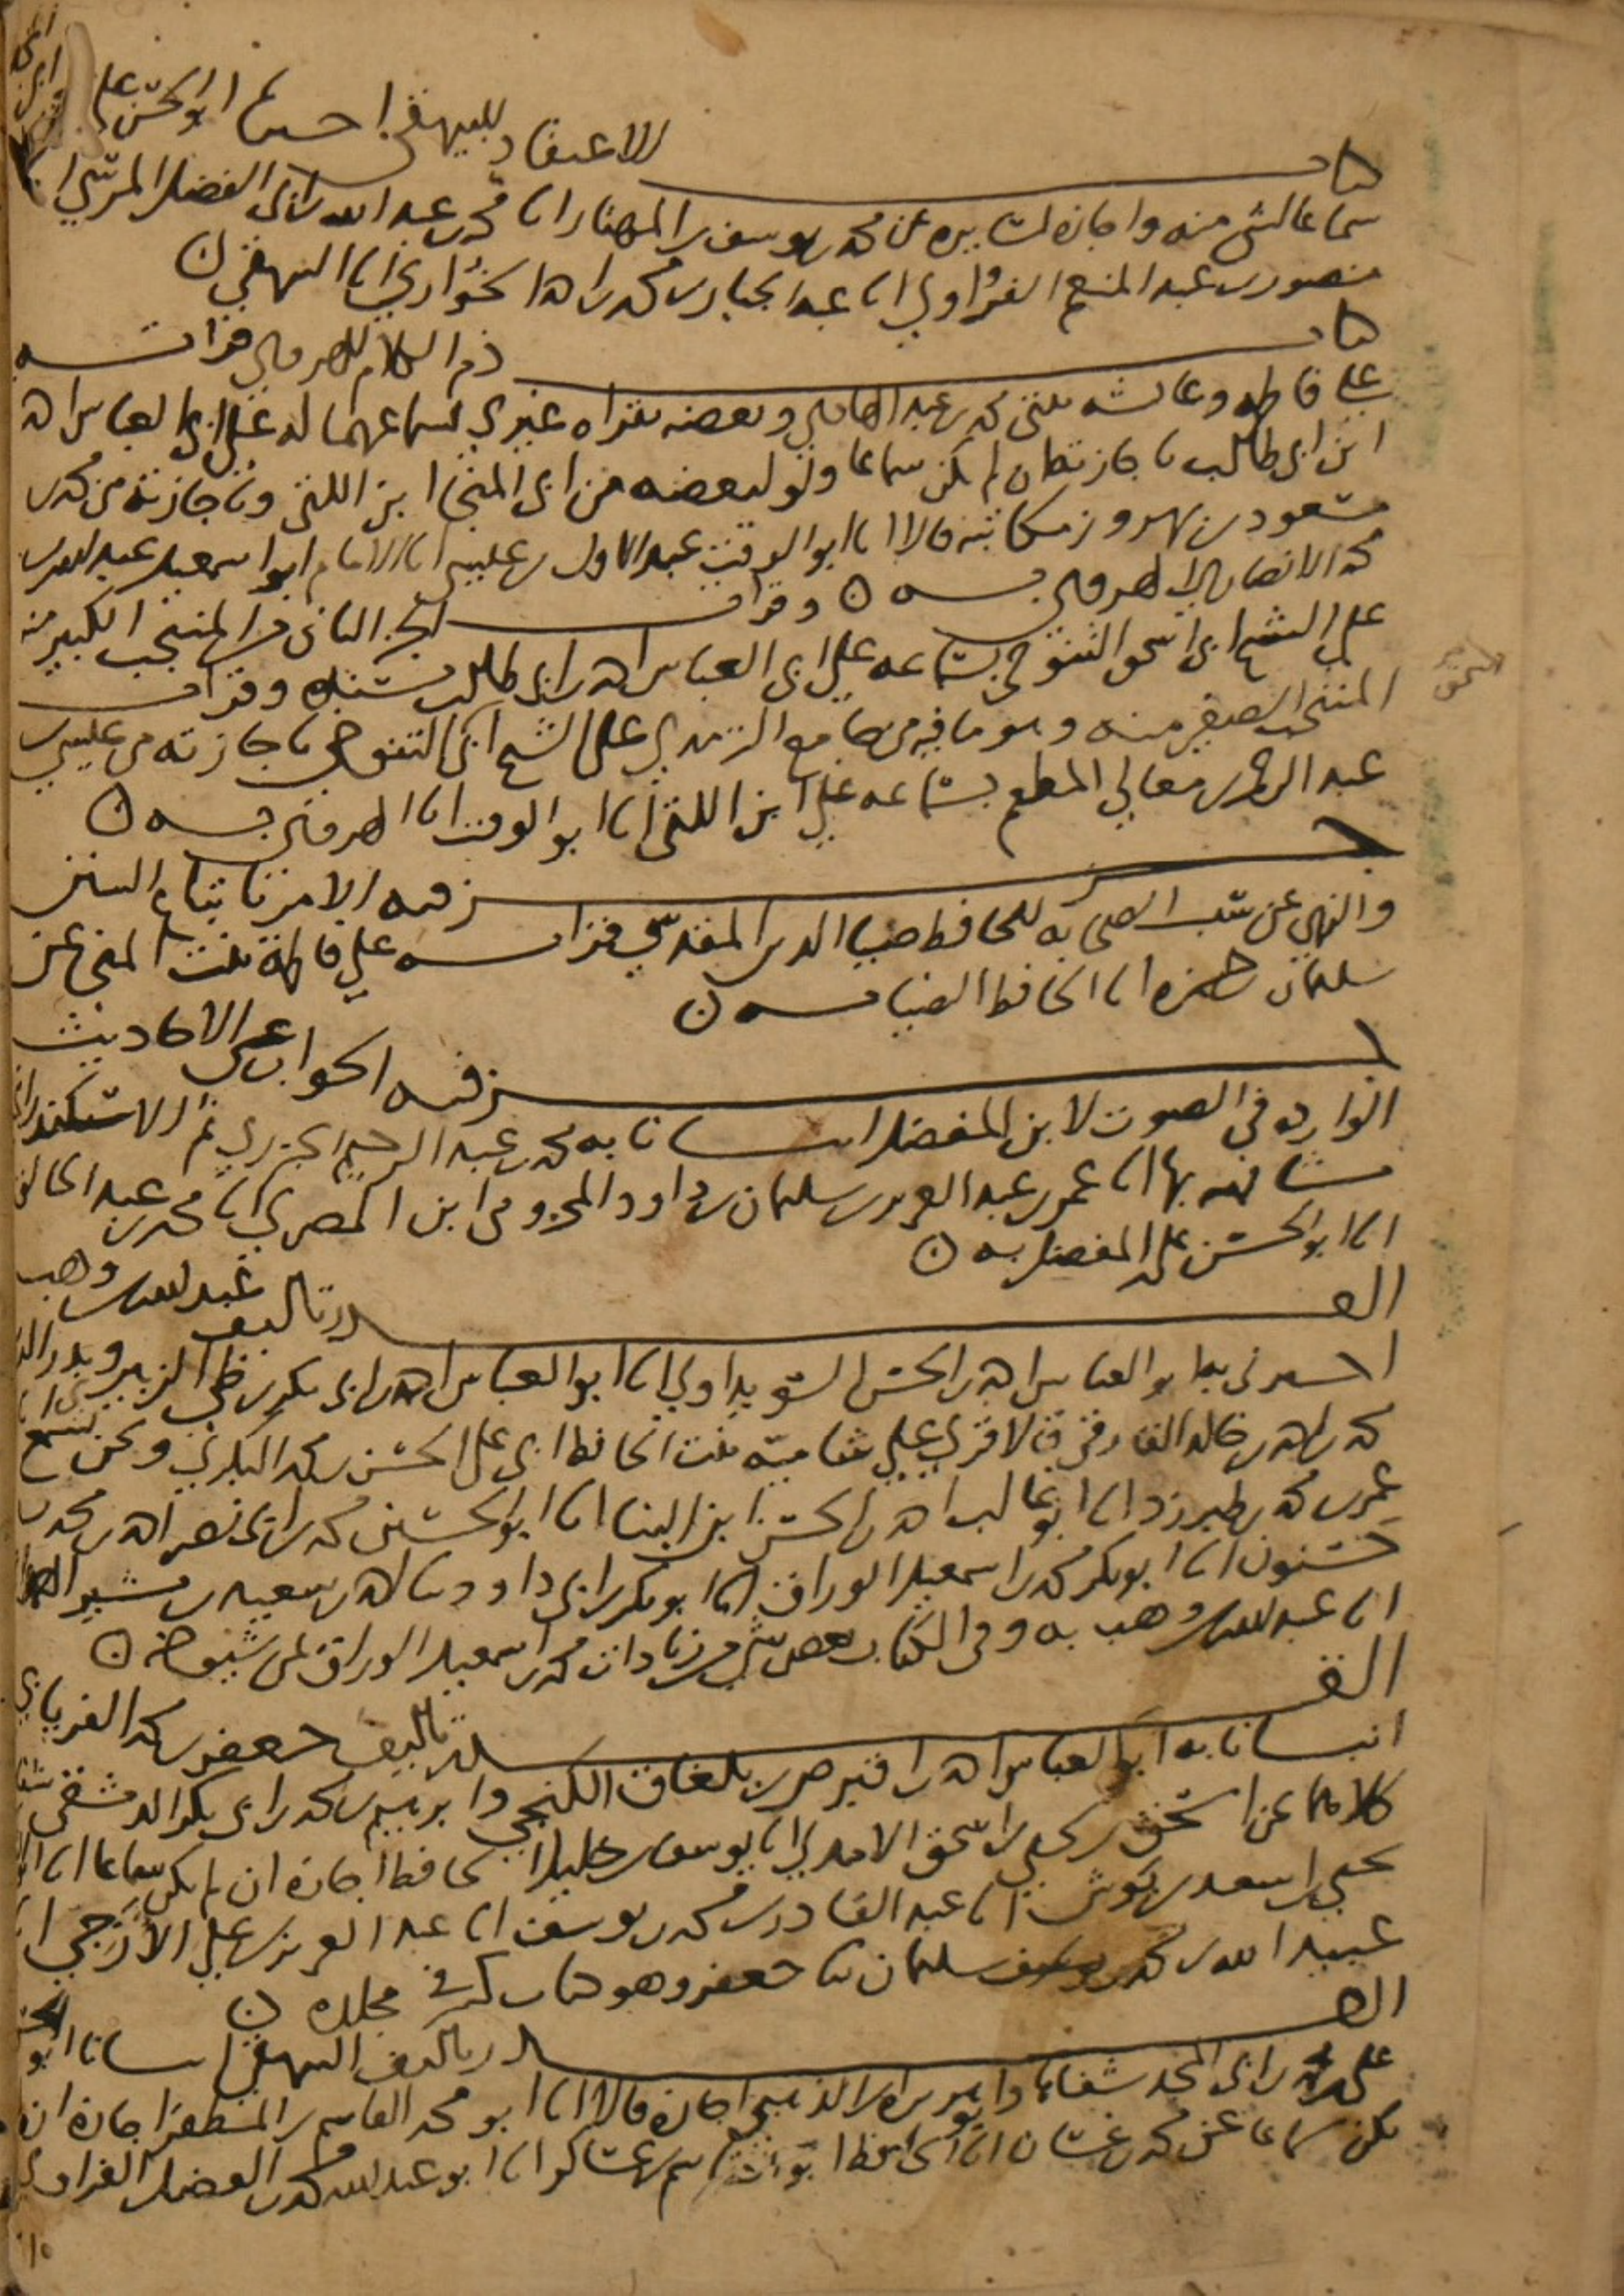 كتاب الاعتقاد للبيهقي اخبرنا ابو الحسن علي
سماعا لشي منه واجازة لسايره عن محمد بن يوسف بن المهتار انا محمد بن عبد الله بن ابي الفضل المرسي انا
منصور بن عبد المنعم الفراوي انا عبد الجبار بن محمد بن احمد الخواري انا البيهقي ن
كتاب ذم الكلام للهروي قراته
على فاطمة وعائشة بنتي محمد بن عبد الهادي وبعضه بقراه غيري بسماعهما له على ابي العباس احمد
ابن ابي طالب باجازته ان لم يكن سماعا ولو لبعضه من ابي المنجا ابن اللتي وباجازته من محمد بن
مسعود بن بهروز مكاتبة قالا انا ابو الوقت عبد الاول بن عيسى انا الامام ابو اسمعيل عبد الله بن
محمد الانصاري الهروي به ن وقرات الجزء الثاني من المنتخب الكبير منه
على الشيخ ابي اسحق التنوخي بسماعه على ابي العباس احمد بن ابي طالب بسنده وقرات
المنتخب الصغير منه وهو ما فيه من جامع الترمذي على الشيخ ابي اسحق التنوخي باجازته من عيسى بن
عبد الرحمن بن معالي المطعم بسماعه على ابن اللتي انا ابو الوقت انا الهروي به ن
جزء فيه الامر باتباع السنن
والنهي عن سب الصحابه للحافظ ضيا الدين المقدسي قراته على فاطمة بنت المنجا عن
سليمان بن حمزه انا الحافظ الضيا به ن
جزء فيه الجواب عن الاحاديث
الوارده في الصوت لابن المفضل انبانا به محمد بن عبد الرحيم الجزري ثم الاسكندراني
مشافهه بها انا عمر بن عبد العزيز بن سليمان بن داود المخزومي ابن المصري انا محمد بن عبد الخالق
انا ابو الحسن علي بن المفضل به ن
القدر تاليف عبد الله بن وهب
اخبرني به ابو العباس احمد بن الحسن السويداوي انا ابو العباس احمد بن ابي بكر بن طي الزبيري وبدر الدين
محمد بن احمد بن خالد الفارقي قالا قرئ على شامية بنت الحافظ ابي علي الحسن بن محمد البكري ونحن نسمع انا
عمر بن محمد بن طبرزد انا ابو غالب احمد بن الحسن ابن البنا انا ابو الحسين محمد بن ابي نصر احمد بن محمد بن
حسنون انا ابو بكر محمد بن اسمعيل الوراق انا ابو بكر بن ابي داود ثنا احمد بن سعيد بن بشير الهمداني
انا عبد الله بن وهب به وفي الكتاب بعض شي من زيادات محمد بن اسمعيل الوراق عن شيوخه ن
القدر تاليف جعفر بن محمد الفريابي
انبانا به ابو العباس احمد بن اقبرص بن بلغاق الكنجي وابرهيم بن محمد بن ابي بكر الدمشقي
كلاهما عن اسحق بن يحيى بن اسحق الامدي انا يوسف بن خليل الحافظ اجازة ان لم يكن سماعا انا
يحيى بن اسعد بن بوش انا عبد القادر بن محمد بن يوسف انا عبد العزيز بن علي الازجي انا
عبيد الله بن محمد بن سليمان ثنا جعفر وهو كتاب كبير في مجلده ن
القدر تاليف البيهقي انبانا ابو الحسن
علي بن محمد بن ابي المجد شفاها وابو هريرة بن الذهبي اجازة قالا انا ابو محمد القاسم بن المظفر اجازة ان لم
يكن سماعا عن محمد بن غسان انا الحافظ ابو القاسم بن عساكر انا ابو عبد الله محمد بن الفضل الفراوي